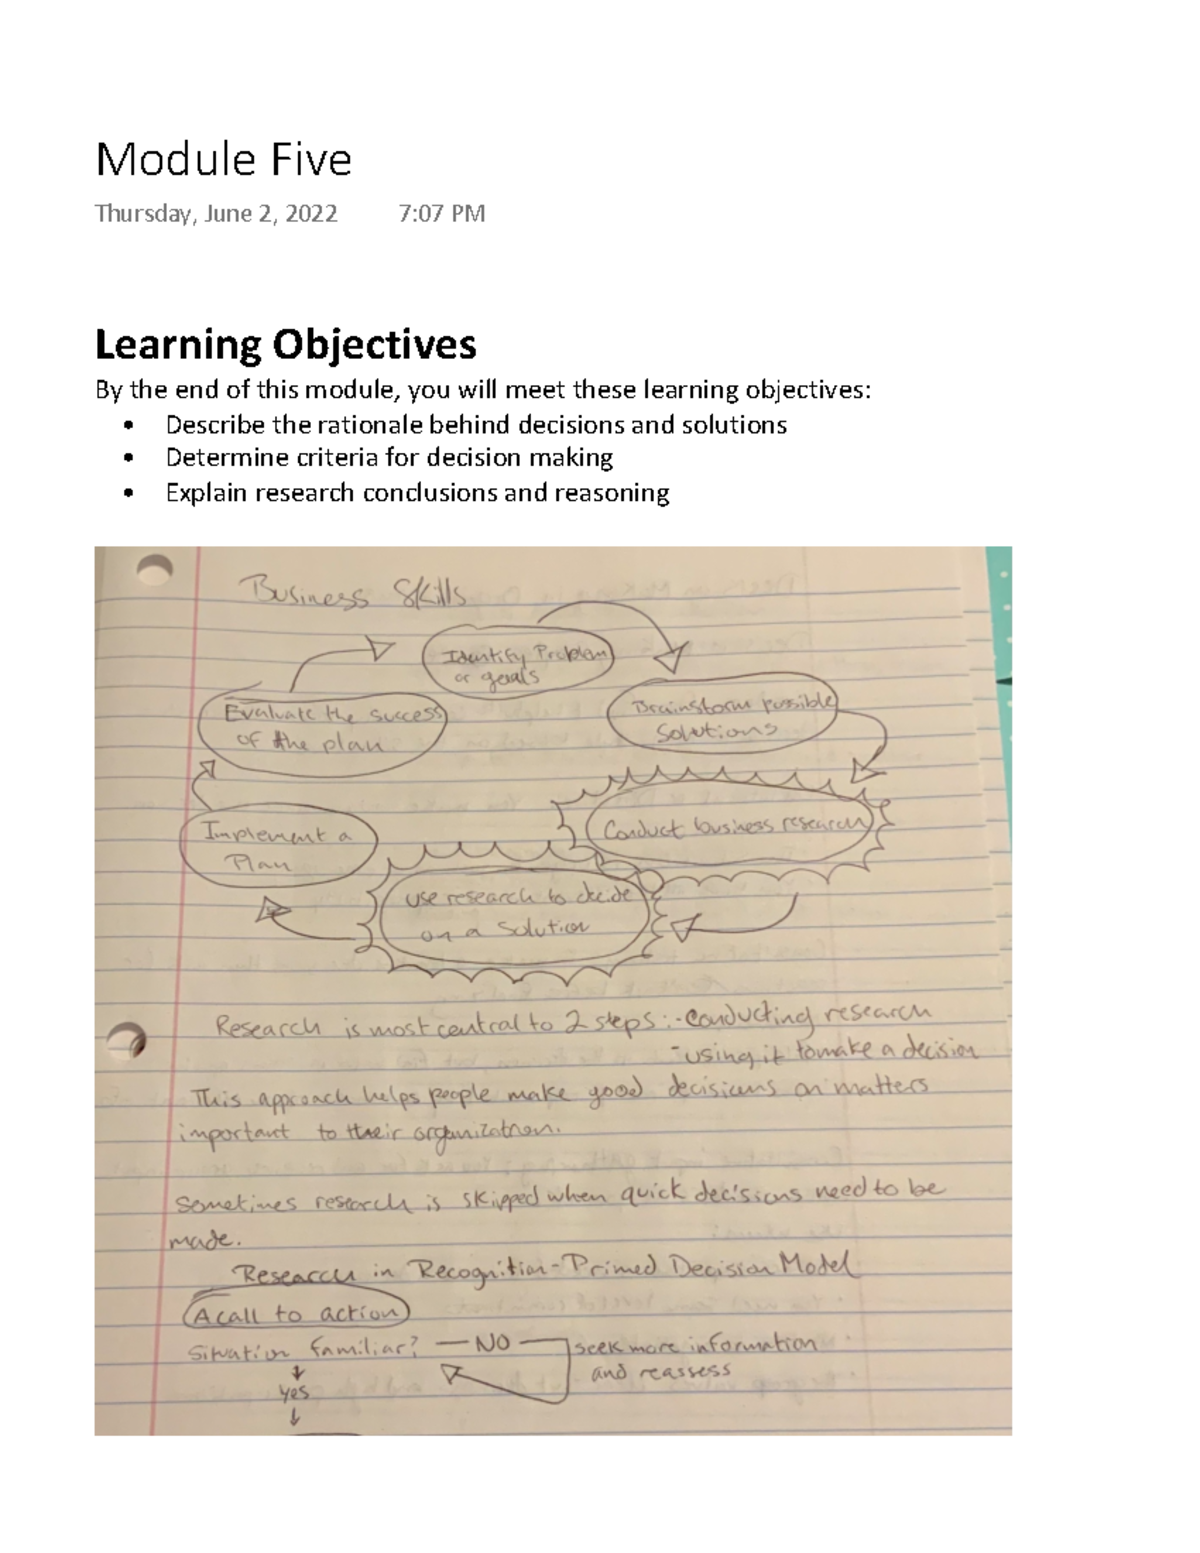 Module Five
Thursday, June 2, 2022 7:07 PM
Learning Objectives
By the end of this module, you will meet these learning objectives:
• Describe the rationale behind decisions and solutions
• Determine criteria for decision making
• Explain research conclusions and reasoning
Business Skills
Identify Problem
or goals
Brainstorm possible
Solutions
Conduct business research
use research to decide
on a solution
Implement a
Plan
Evaluate the success
of the plan
Research is most central to 2 steps: - Conducting research
- using it to make a decision
This approach helps people make good decisions on matters
important to their organization.
Sometimes research is skipped when quick decisions need to be
made.
Research in Recognition-Primed Decision Model
A call to action
Situation familiar? — NO — seek more information
and reassess
yes